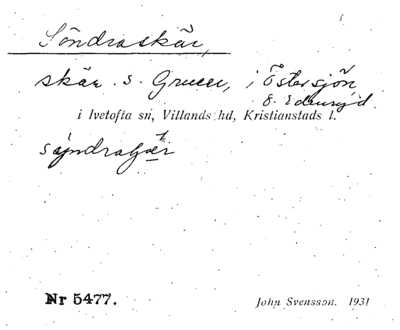 Söndraskär,
skär s. Gruuen, i Östersjön
ö. Edenryd
i Ivetofta sn, Villands hd, Kristianstads l.
Nr 5477.
John Svensson. 1931